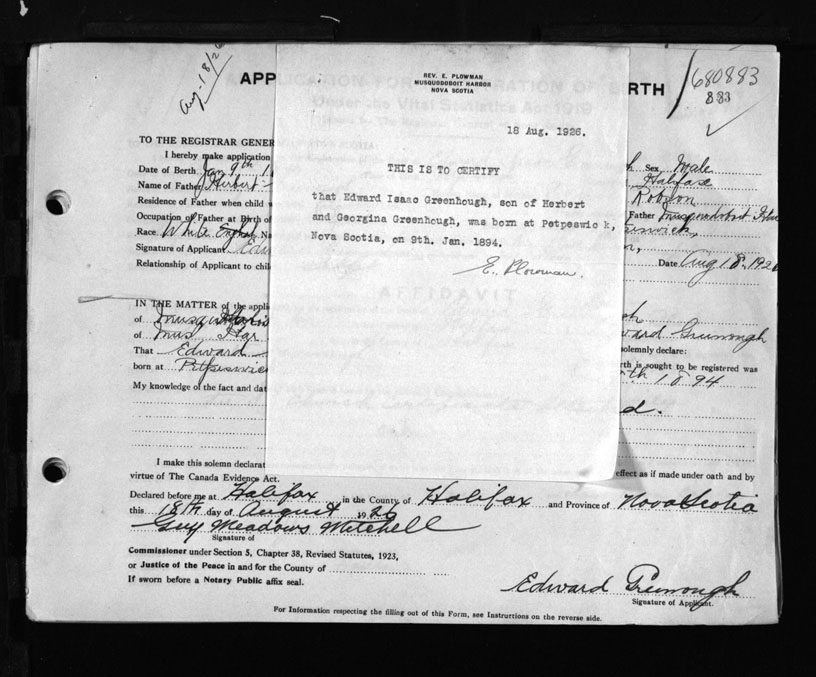 Aug-18/26
APP
RTH
680883
883
REV. E. PLOWMAN
MUSQUODOBOIT HARBOR
NOVA SCOTIA
18 Aug. 1926.
THIS IS TO CERTIFY
that Edward Isaac Greenhough, son of Herbert
and Georgina Greenhough, was born at Petpeswick,
Nova Scotia, on 9th. Jan. 1894.
E. Plowman.
TO THE REGISTRAR GENER
I hereby make application
Sex Male
Date of Birth Jan 9th
Halifax
Name of Father Herbert
Robson
Residence of Father when child w
Father Musquodoboit
Occupation of Father at Birth of
Race. White English
Signature of Applicant Edw
Relationship of Applicant to chil
Date Aug 18. 192
AFFIDAVIT
IN THE MATTER of the appli
of
of Mus Har
ward Greenough
That Edward
solemnly declare:
born at Petpeswic
rth is sought to be registered was
th 1894
My knowledge of the fact and dat
d.
I make this solemn declarat
effect as if made under oath and by
virtue of The Canada Evidence Act.
Declared before me at Halifax in the County of Halifax and Province of Nova Scotia
this 18th day of August 1926
Guy Meadows Mitchell
Signature of
Commissioner under Section 5, Chapter 38, Revised Statutes, 1923,
or Justice of the Peace in and for the County of
If sworn before a Notary Public affix seal.
Edward Greenough
Signature of Applicant.
For Information respecting the filling out of this Form, see Instructions on the reverse side.